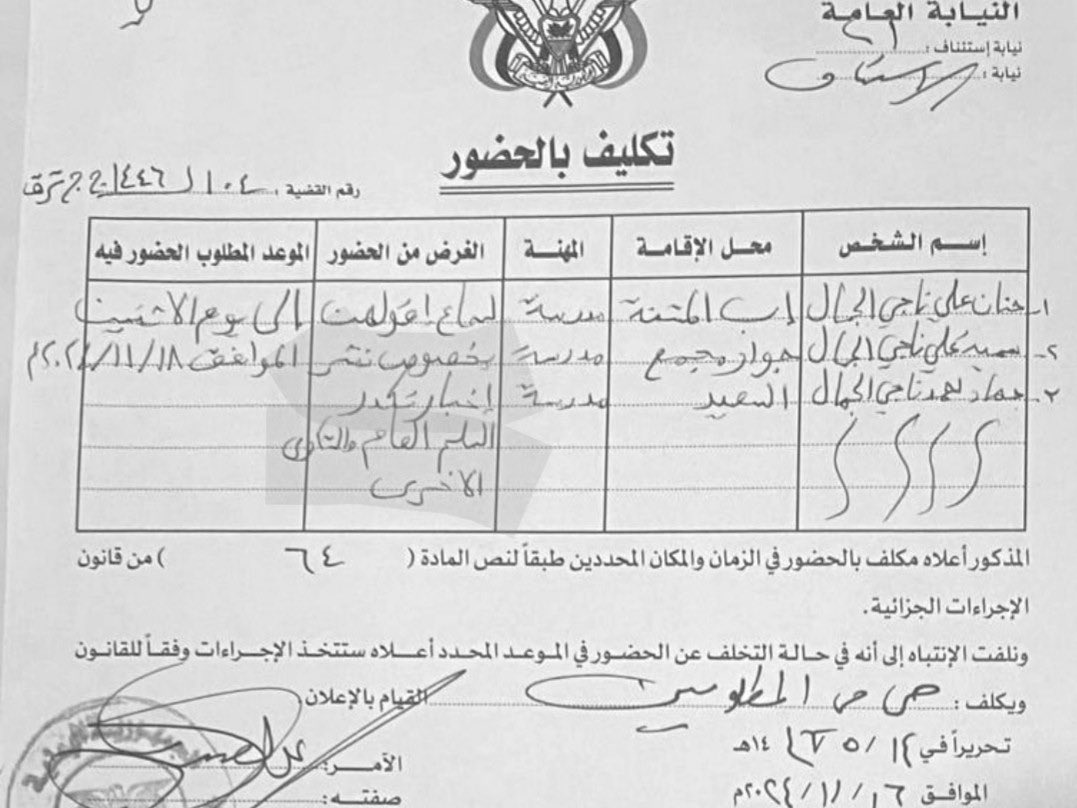 النيابة العامة
نيابة إستئناف : إب
نيابة : الاستئناف
تكليف بالحضور
رقم القضية : ١٠٤ لـ ١٤٤٦ ج ج
إسم الشخص | محل الإقامة | المهنة | الغرض من الحضور | الموعد المطلوب الحضور فيه
١- حنان علي ناجي الجمال | إب المتنة | مدرسة | لسماع اقوالهن | إلى يوم الاثنين
٢- سميه علي ناجي الجمال | جوار مجمع | مدرسة | بخصوص نشر | الموافق ١٨/١١/٢٠٢٤م
٢- محمد ناجي الجمال | السعيد | مدرسة | إخبار تكدر
السلم العام
الاخرى
المذكور أعلاه مكلف بالحضور في الزمان والمكان المحددين طبقاً لنص المادة ( ٦٤ ) من قانون
الإجراءات الجزائية .
ونلفت الإنتباه إلى أنه في حالة التخلف عن الحضور في الموعد المحدد أعلاه ستتخذ الإجراءات وفقاً للقانون
ويكلف : القيام بالإعلان
تحريراً في ١٤ / ٥ / ١٤هـ
الأمر :
الموافق ١٦ / ١١ / ٢٠٢٤م
صفته :